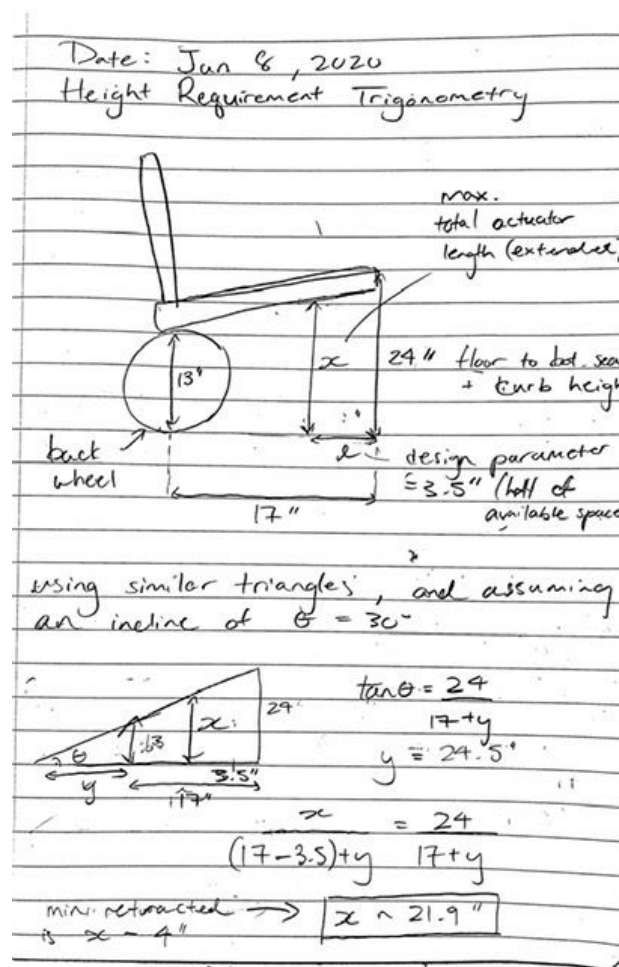 Date: Jan 8, 2020
Height Requirement Trigonometry
max.
total actuator
length (extended)
x
24" floor to bot. sea
+ curb height
13"
back
wheel
l
design parameter
= 3.5" (half of
available space
17"
using similar triangles, and assuming
an incline of θ = 30°
tanθ = 24 / 17+y
y = 24.5"
θ
13
x
24
y
17"
3.5"
x / (17-3.5)+y = 24 / 17+y
min. retracted →
is x - 4"
x ~ 21.9"